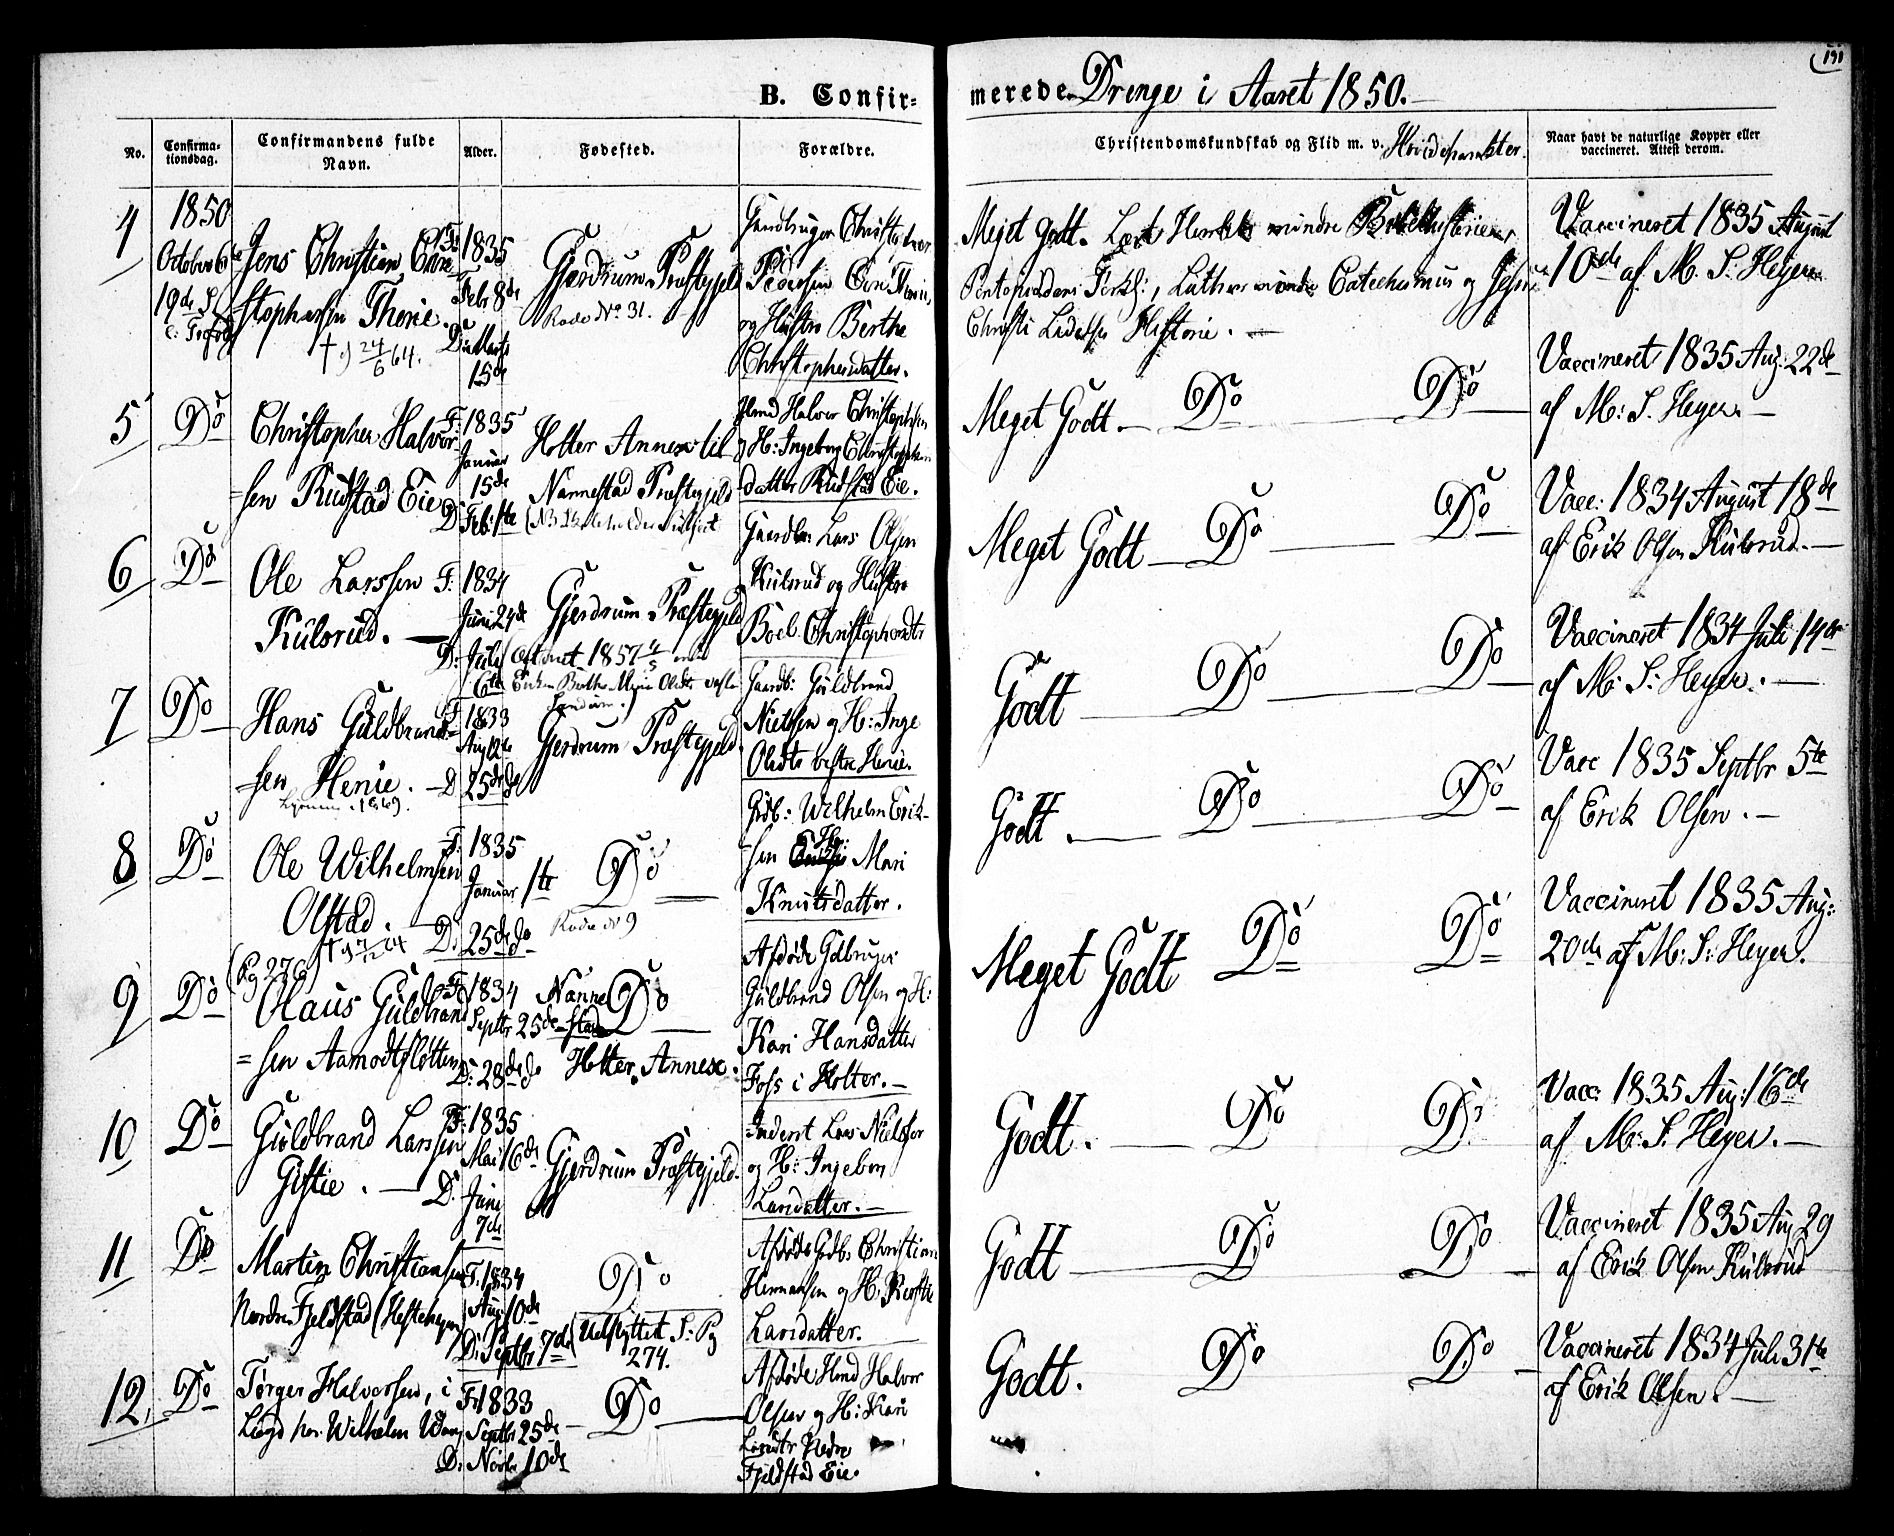 191
B. Confir-
merede Drenge i Aaret 1850.
No.
Confirma-
tionsdag.
Confirmandens fulde
Navn.
Alder.
Fødested.
Forældre.
Christendomskundskab og Flid m. v.
Naar havt de naturlige Kopper eller
vaccineret. Attest derom.
4
1850
October 6te
19de S.
e. Trefoldh
Jens Christian Chri-
stophersen Thonie.
† 24/6 64.
F: 1835
Febr 8de
D: Marts
15de
Gjerdrum Præstegjeld
Rode No 31.
Gaardbruger Christopher
Pedersen
og Hustro Berthe
Christophersdatter.
Meget godt. Læst mindre Bibelhistorie
Pontopidans Forkl:, Luthers mindre Catechismus og Jesu
Christi Lidelses Historie.
Vaccineret 1835 August
10de af M. S. Heyer
5
Do
Christopher Halvor-
sen Rudstad Eie
F: 1835
Januar
15de
D: Feb: 1te
Holter Annex til
Nannestad Præstegjeld
Hmd Halvor Christophersen
og H: Ingeborg Christophers-
datter Rudstad Eie.
Meget Godt.
Do
Do
Vaccineret 1835 Aug: 22de
af M: S. Heyer.
6
Do
Ole Larssen
Kulsrud.
F: 1834
Juni 24de
D: Juli
6te
Gjerdrum Præstegjeld
1857 4/5
Gaardbr: Lars Olsen
Kulsrud og Hustro
Boel Christophersdtr
Meget Godt
Do
Do
Vacc: 1834 August 18de
af Erik Olsen Kulsrud.
7
Do
Hans Guldbrand-
sen Henie.
F: 1833
Aug 12te
D 25de do
Gjerdrum Præstegjeld
Gaardb: Guldbrand
Nielsen og H: Inge
Olsdtr vestre Henie.
Godt
Do
Do
Vaccineret 1834 Juli 14de
af M: S: Heyer.
8
Do
Ole Wilhelmsen
Olstad.
† 7/12 64
F: 1835
Januar 1te
D: 25de do
Do
Rode No 9
Grdb: Wilhelm Erik-
sen H: Mari
Knutsdatter.
Godt.
Do
Do
Vacc 1835 Septbr 5te
af Erik Olsen.
9
Do
(Pg 276)
Olaus Guldbrand-
sen Aamodtsletten
F: 1834
Septbr 25de
D: 28de do
Nanne-
stad
Do
Holter Annex.
Afdøde Gdbruger
Guldbrand Olsen og H:
Kari Hansdatter
Foss i Holter.
Meget Godt
Do
Do
Vaccineret 1835 Aug:
20de af M: S: Heyer.
10
Do
Guldbrand Larssen
Gistie.
F: 1835
Mai 16de
D. Juni
7de
Gjerdrum Præstegjeld.
Inderst Lars Nielsen
og H: Ingeborg
Larsdatter.
Godt.
Do
Do
Vacc: 1835 Aug: 16de
af M: S. Heyer.
11
Do
Martin Christiansen
Nordre Fjeldstad
F. 1834
Aug 10de
D: Septbr 7de
Do
(Udflyttet S: Pg
274.
Afdøde Gdb: Christian
Hermansen og H: Kirstie
Larsdatter.
Godt
Do
Do
Vaccineret 1835 Aug 29
af Erik Olsen Kulsrud
12.
Do
Torger Halvorsen, i
Lægd hos Wilhelm
F: 1833
Septbr 25de
D: Novbr 10de
Do
Afdøde Hmd Halvor
Olsen og H: Kari
Larsdtr Nedre
Fjeldstad Eie.
Godt.
Do
Do
Vaccineret 1834 Juli 31te
af Erik Olsen.